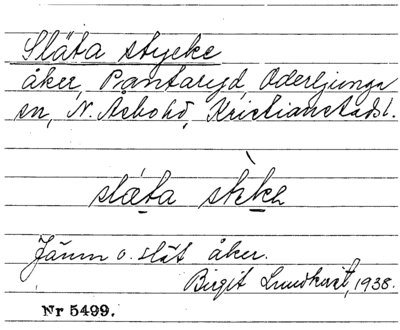 Släta stycke
åker, Prantaryd, Oderljunga
sn, N. Åsbo hd, Kristianstads l.
slæta stìke
Jämn o. slät åker.
Birgit Lundkvist, 1938.
Nr 5499.